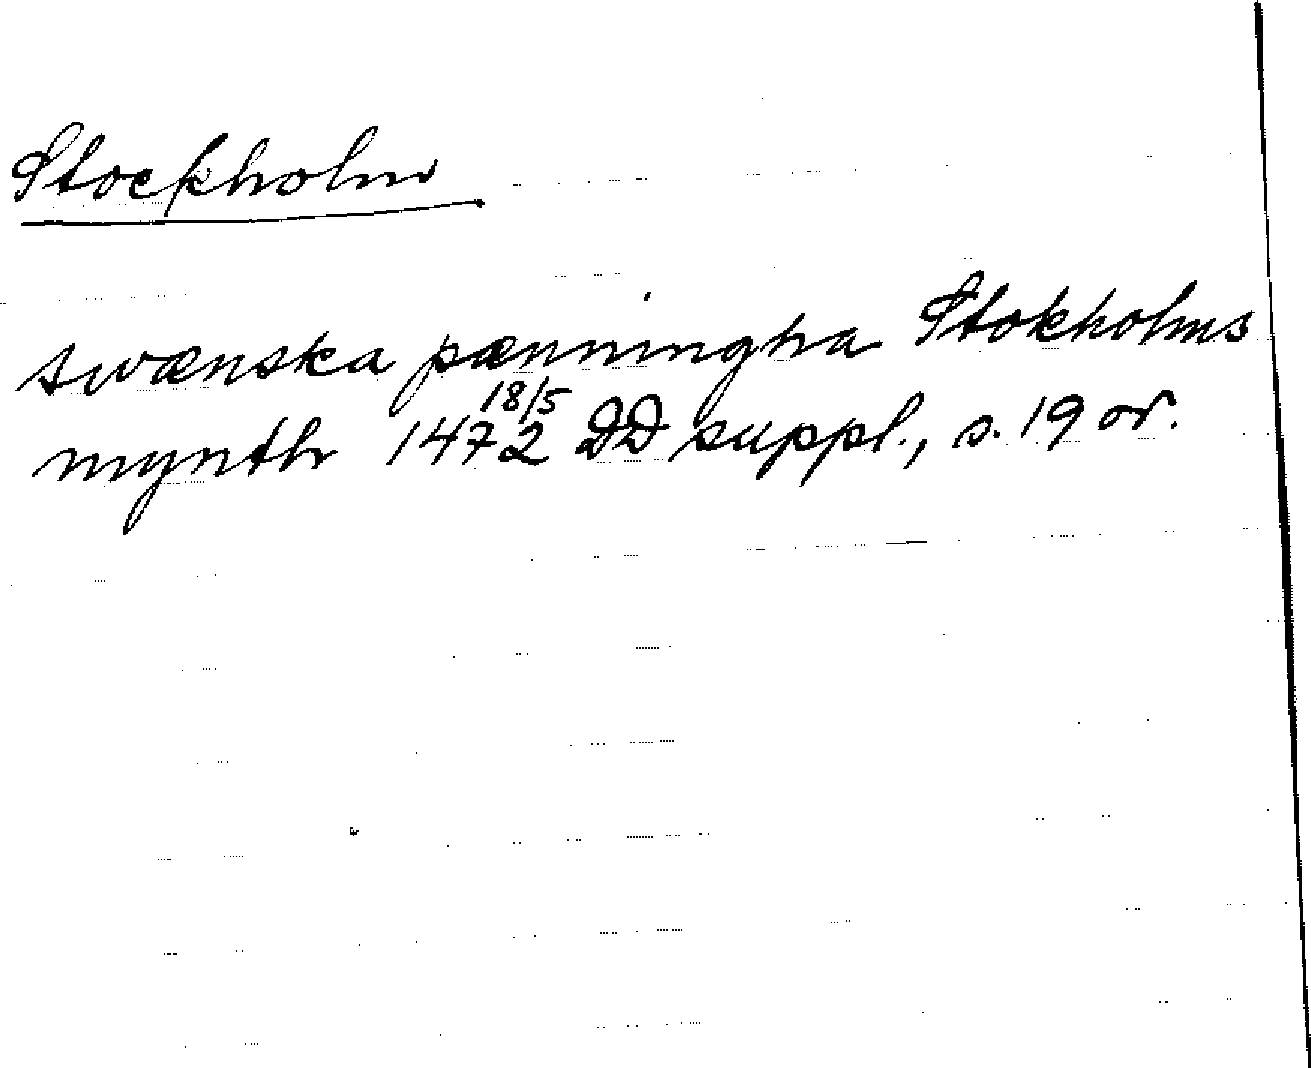 Stockholm
swænska pænningha Stokholms
mynth 1472 18/5 DD suppl., s. 19 or.